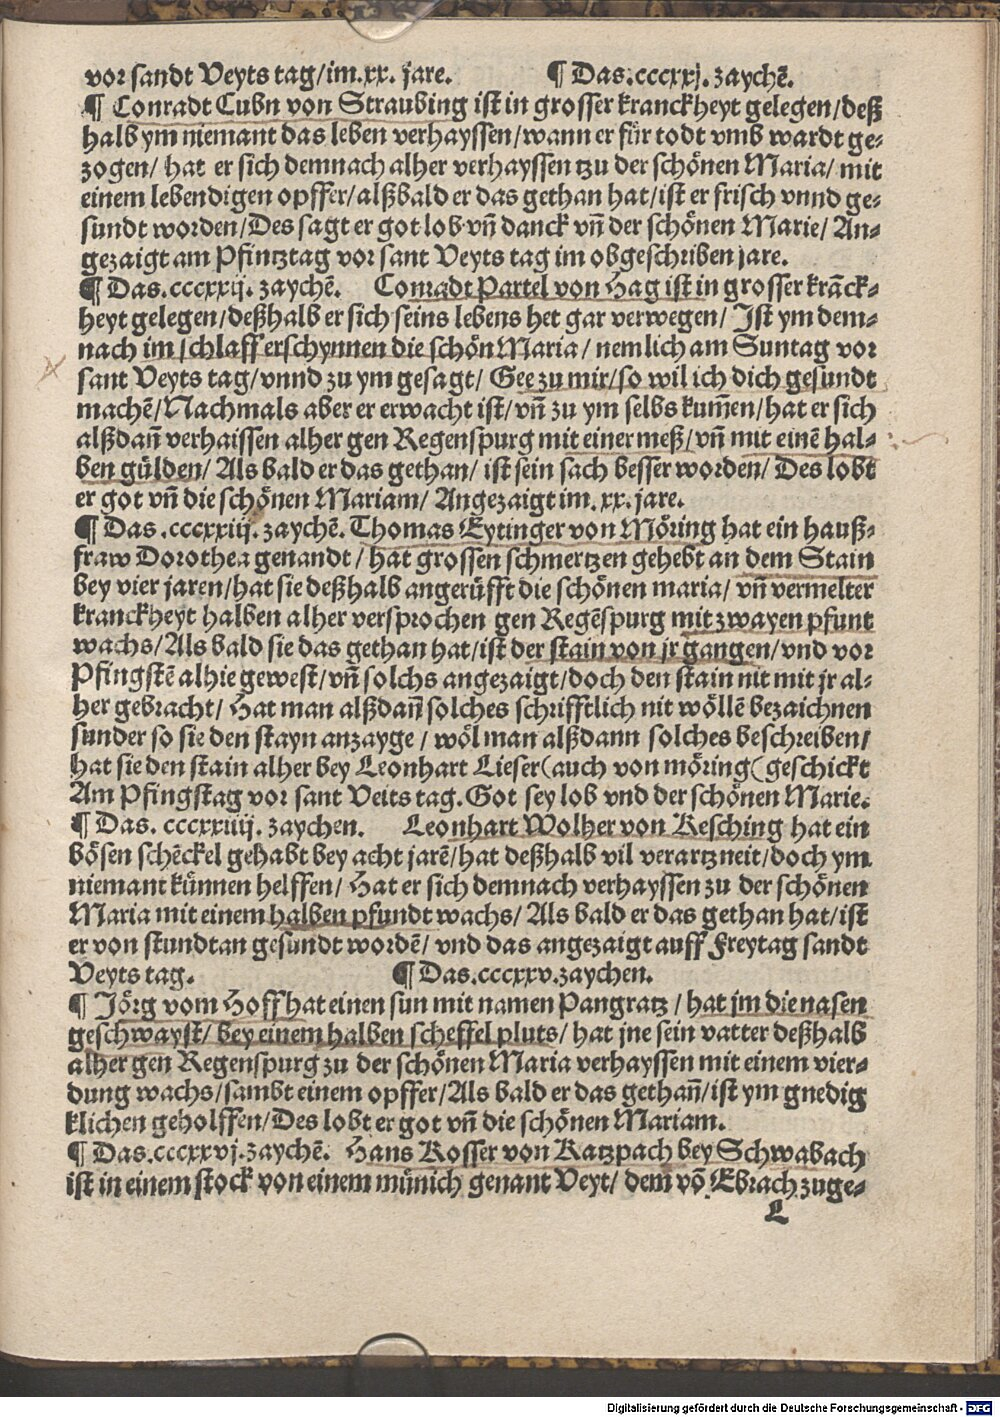 vor sandt Veyts tag/im.xx. jare. ¶ Das.cccxxj. zaychẽ.
¶ Conradt Cubn von Straubing ist in grosser kranckheyt gelegen/deß
halb ym niemant das leben verhayssen/wann er für todt vmb wardt ge⸗
zogen/ hat er sich demnach alher verhayssen tzu der schönen Maria/ mit
einem lebendigen opffer/alßbald er das gethan hat/ist er frisch vnnd ge⸗
sundt worden/Des sagt er got lob vñ danck vñ der schönen Marie/ An⸗
gezaigt am Pfintztag vor sant Veyts tag im obgeschriben jare.
¶ Das.cccxxij. zaychẽ. Conradt Partel von Hag ist in grosser krãck⸗
heyt gelegen/deßhalb er sich seins lebens het gar verwegen/ Ist ym dem⸗
nach im schlaff erschynnen die schön Maria/ nemlich am Suntag vor
sant Veyts tag/vnnd zu ym gesagt/ Gee zu mir/so wil ich dich gesundt
machẽ/Nachmals aber er erwacht ist/vñ zu ym selbs kum̃en/hat er sich
alßdañ verhaissen alher gen Regenspurg mit einer meß/vñ mit einẽ hal⸗
ben gülden/ Als bald er das gethan/ ist sein sach besser worden/ Des lobt
er got vñ die schönen Mariam/ Angezaigt im. xx. jare.
¶ Das .cccxxiij. zaychẽ. Thomas Eytinger von Möring hat ein hauß⸗
fraw Dorothea genandt/ hat grossen schmertzen gehebt an dem Stain
bey vier jaren/hat sie deßhalb angerüfft die schönen maria/ vñ vermelter
kranckheyt halben alher versprochen gen Regẽspurg mit zwayen pfunt
wachs/Als bald sie das gethan hat/ist der stain von jr gangen/vnd vor
Pfingstẽ alhie gewest/vñ solchs angezaigt/doch den stain nit mit jr al⸗
her gebracht/ Hat man alßdañ solches schrifftlich nit wöllẽ bezaichnen
sunder so sie den stayn anzayge/ wöl man alßdann solches beschreiben/
hat sie den stain alher bey Leonhart Lieser(auch von möring(geschickt
Am Pfingstag vor sant Veits tag. Got sey lob vnd der schönen Marie.
¶ Das. cccxxiiij. zaychen. Leonhart Woltzer von Kesching hat ein
bösen schẽckel gehabt bey acht jarẽ/hat deßhalb vil verartzneit/doch ym
niemant künnen helffen/ Hat er sich demnach verhayssen zu der schönen
Maria mit einem halben pfundt wachs/ Als bald er das gethan hat/ist
er von stundtan gesundt wordẽ/ vnd das angezaigt auff Freytag sandt
Veyts tag. ¶ Das.cccxxv.zaychen.
¶ Jörg vom Hoff hat einen sun mit namen Pangratz/ hat jm die nasen
geschwayst/ bey einem halben scheffel pluts/ hat jne sein vatter deßhalb
alher gen Regenspurg zu der schönen Maria verhayssen mit einem vier⸗
dung wachs/sambt einem opffer/Als bald er das gethañ/ist ym gnedig
klichen geholffen/Des lobt er got vñ die schönen Mariam.
¶ Das.cccxxvj.zaychẽ. Hans Kosser von Katzpach bey Schwabach
ist in einem stock von einem münich genant Veyt/ dem võ Ebrach zuge⸗
L
Digitalisierung gefördert durch die Deutsche Forschungsgemeinschaft - DFG